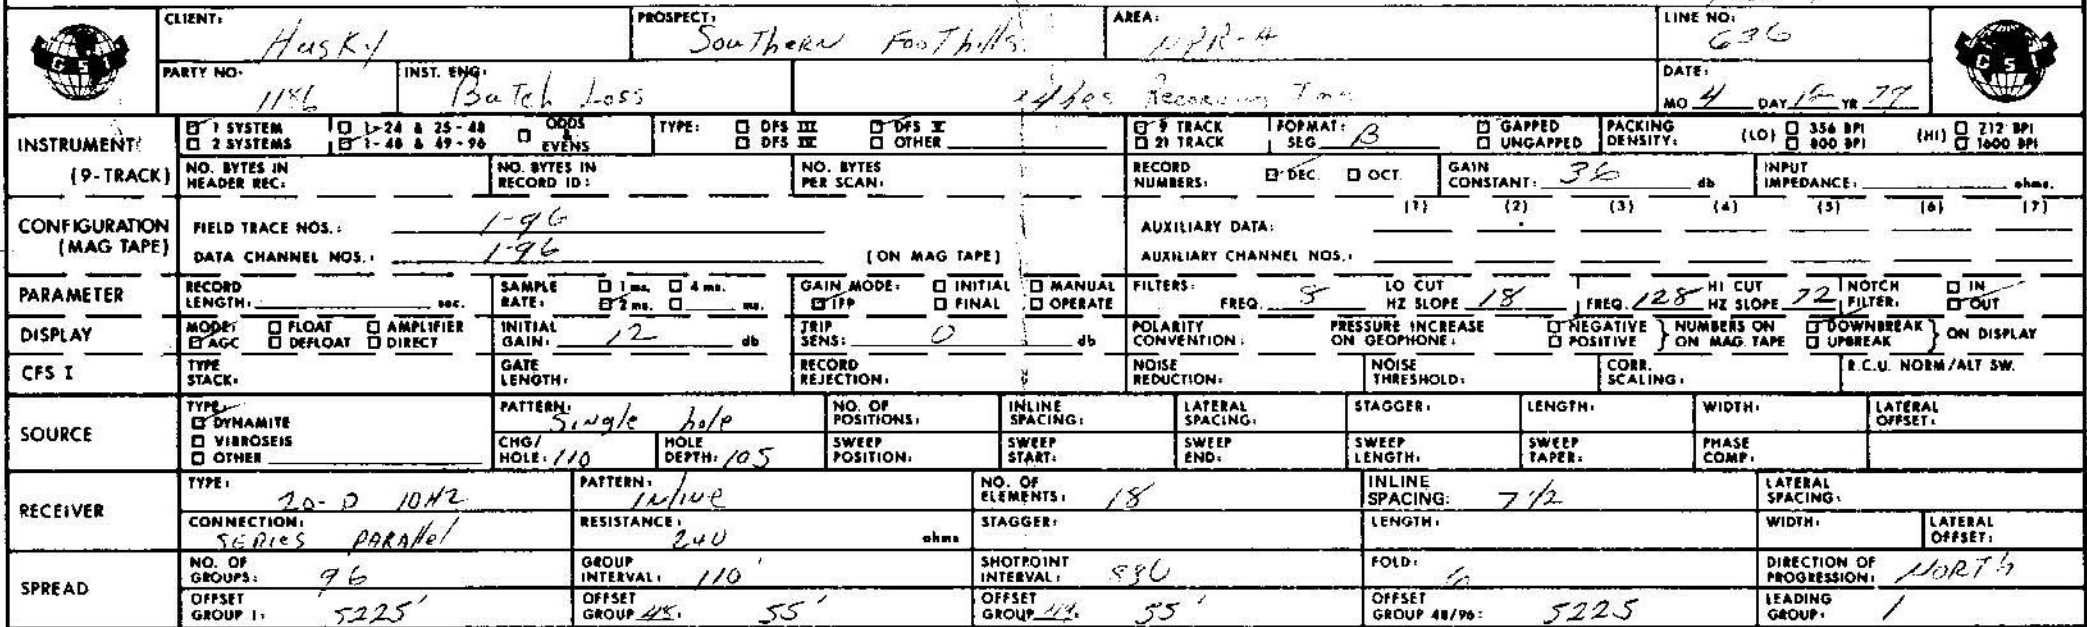 CLIENT: Husky PROSPECT: Southern Foothills AREA: NPR-A LINE NO: 636
GSI GSI
PARTY NO. 1186 INST. ENG. Butch Loss Recording DATE: MO 4 DAY YR 77
INSTRUMENT (9-TRACK)
1 SYSTEM 1-24 & 25-48 ODDS & EVENS TYPE: DFS III DFS V 9 TRACK FORMAT: SEG B GAPPED PACKING DENSITY: (LO) 356 BPI (HI) 712 BPI
2 SYSTEMS 1-48 & 49-96 DFS IV OTHER 21 TRACK UNGAPPED 800 BPI 1600 BPI
NO. BYTES IN HEADER REC: NO. BYTES IN RECORD ID: NO. BYTES PER SCAN: RECORD NUMBERS: DEC. OCT. GAIN CONSTANT: 36 db INPUT IMPEDANCE: ohms.
CONFIGURATION (MAG TAPE)
(1) (2) (3) (4) (5) (6) (7)
FIELD TRACE NOS.: 1-96 AUXILIARY DATA:
DATA CHANNEL NOS.: 1-96 (ON MAG TAPE) AUXILIARY CHANNEL NOS.:
PARAMETER RECORD LENGTH: sec. SAMPLE RATE: 1 ms. 4 ms. 2 ms. ms. GAIN MODE: INITIAL MANUAL IFP FINAL OPERATE FILTERS: LO CUT FREQ. 8 HZ SLOPE 18 HI CUT FREQ. 128 HZ SLOPE 72 NOTCH FILTER: IN OUT
DISPLAY MODE: FLOAT AMPLIFIER AGC DEFLOAT DIRECT INITIAL GAIN: 12 db TRIP SENS: 0 db POLARITY CONVENTION: PRESSURE INCREASE ON GEOPHONE: NEGATIVE POSITIVE NUMBERS ON ON MAG. TAPE DOWNBREAK UPBREAK ON DISPLAY
CFS I TYPE STACK: GATE LENGTH: RECORD REJECTION: NOISE REDUCTION: NOISE THRESHOLD: CORR. SCALING: R.C.U. NORM/ALT SW.
SOURCE
TYPE: DYNAMITE VIBROSEIS OTHER PATTERN: Single hole NO. OF POSITIONS: INLINE SPACING: LATERAL SPACING: STAGGER: LENGTH: WIDTH: LATERAL OFFSET:
CHG/HOLE: 110 HOLE DEPTH: 105 SWEEP POSITION: SWEEP START: SWEEP END: SWEEP LENGTH: SWEEP TAPER: PHASE COMP:
RECEIVER
TYPE: 20-D 10HZ PATTERN: INline NO. OF ELEMENTS: 18 INLINE SPACING: 7 1/2 LATERAL SPACING:
CONNECTION: SERIES PARAllel RESISTANCE: 240 ohms STAGGER: LENGTH: WIDTH: LATERAL OFFSET:
SPREAD
NO. OF GROUPS: 96 GROUP INTERVAL: 110' SHOTPOINT INTERVAL: FOLD: DIRECTION OF PROGRESSION: NORTH
OFFSET GROUP 1: 5225' OFFSET GROUP 48: 55' OFFSET GROUP 49: 55' OFFSET GROUP 48/96: 5225 LEADING GROUP: 1